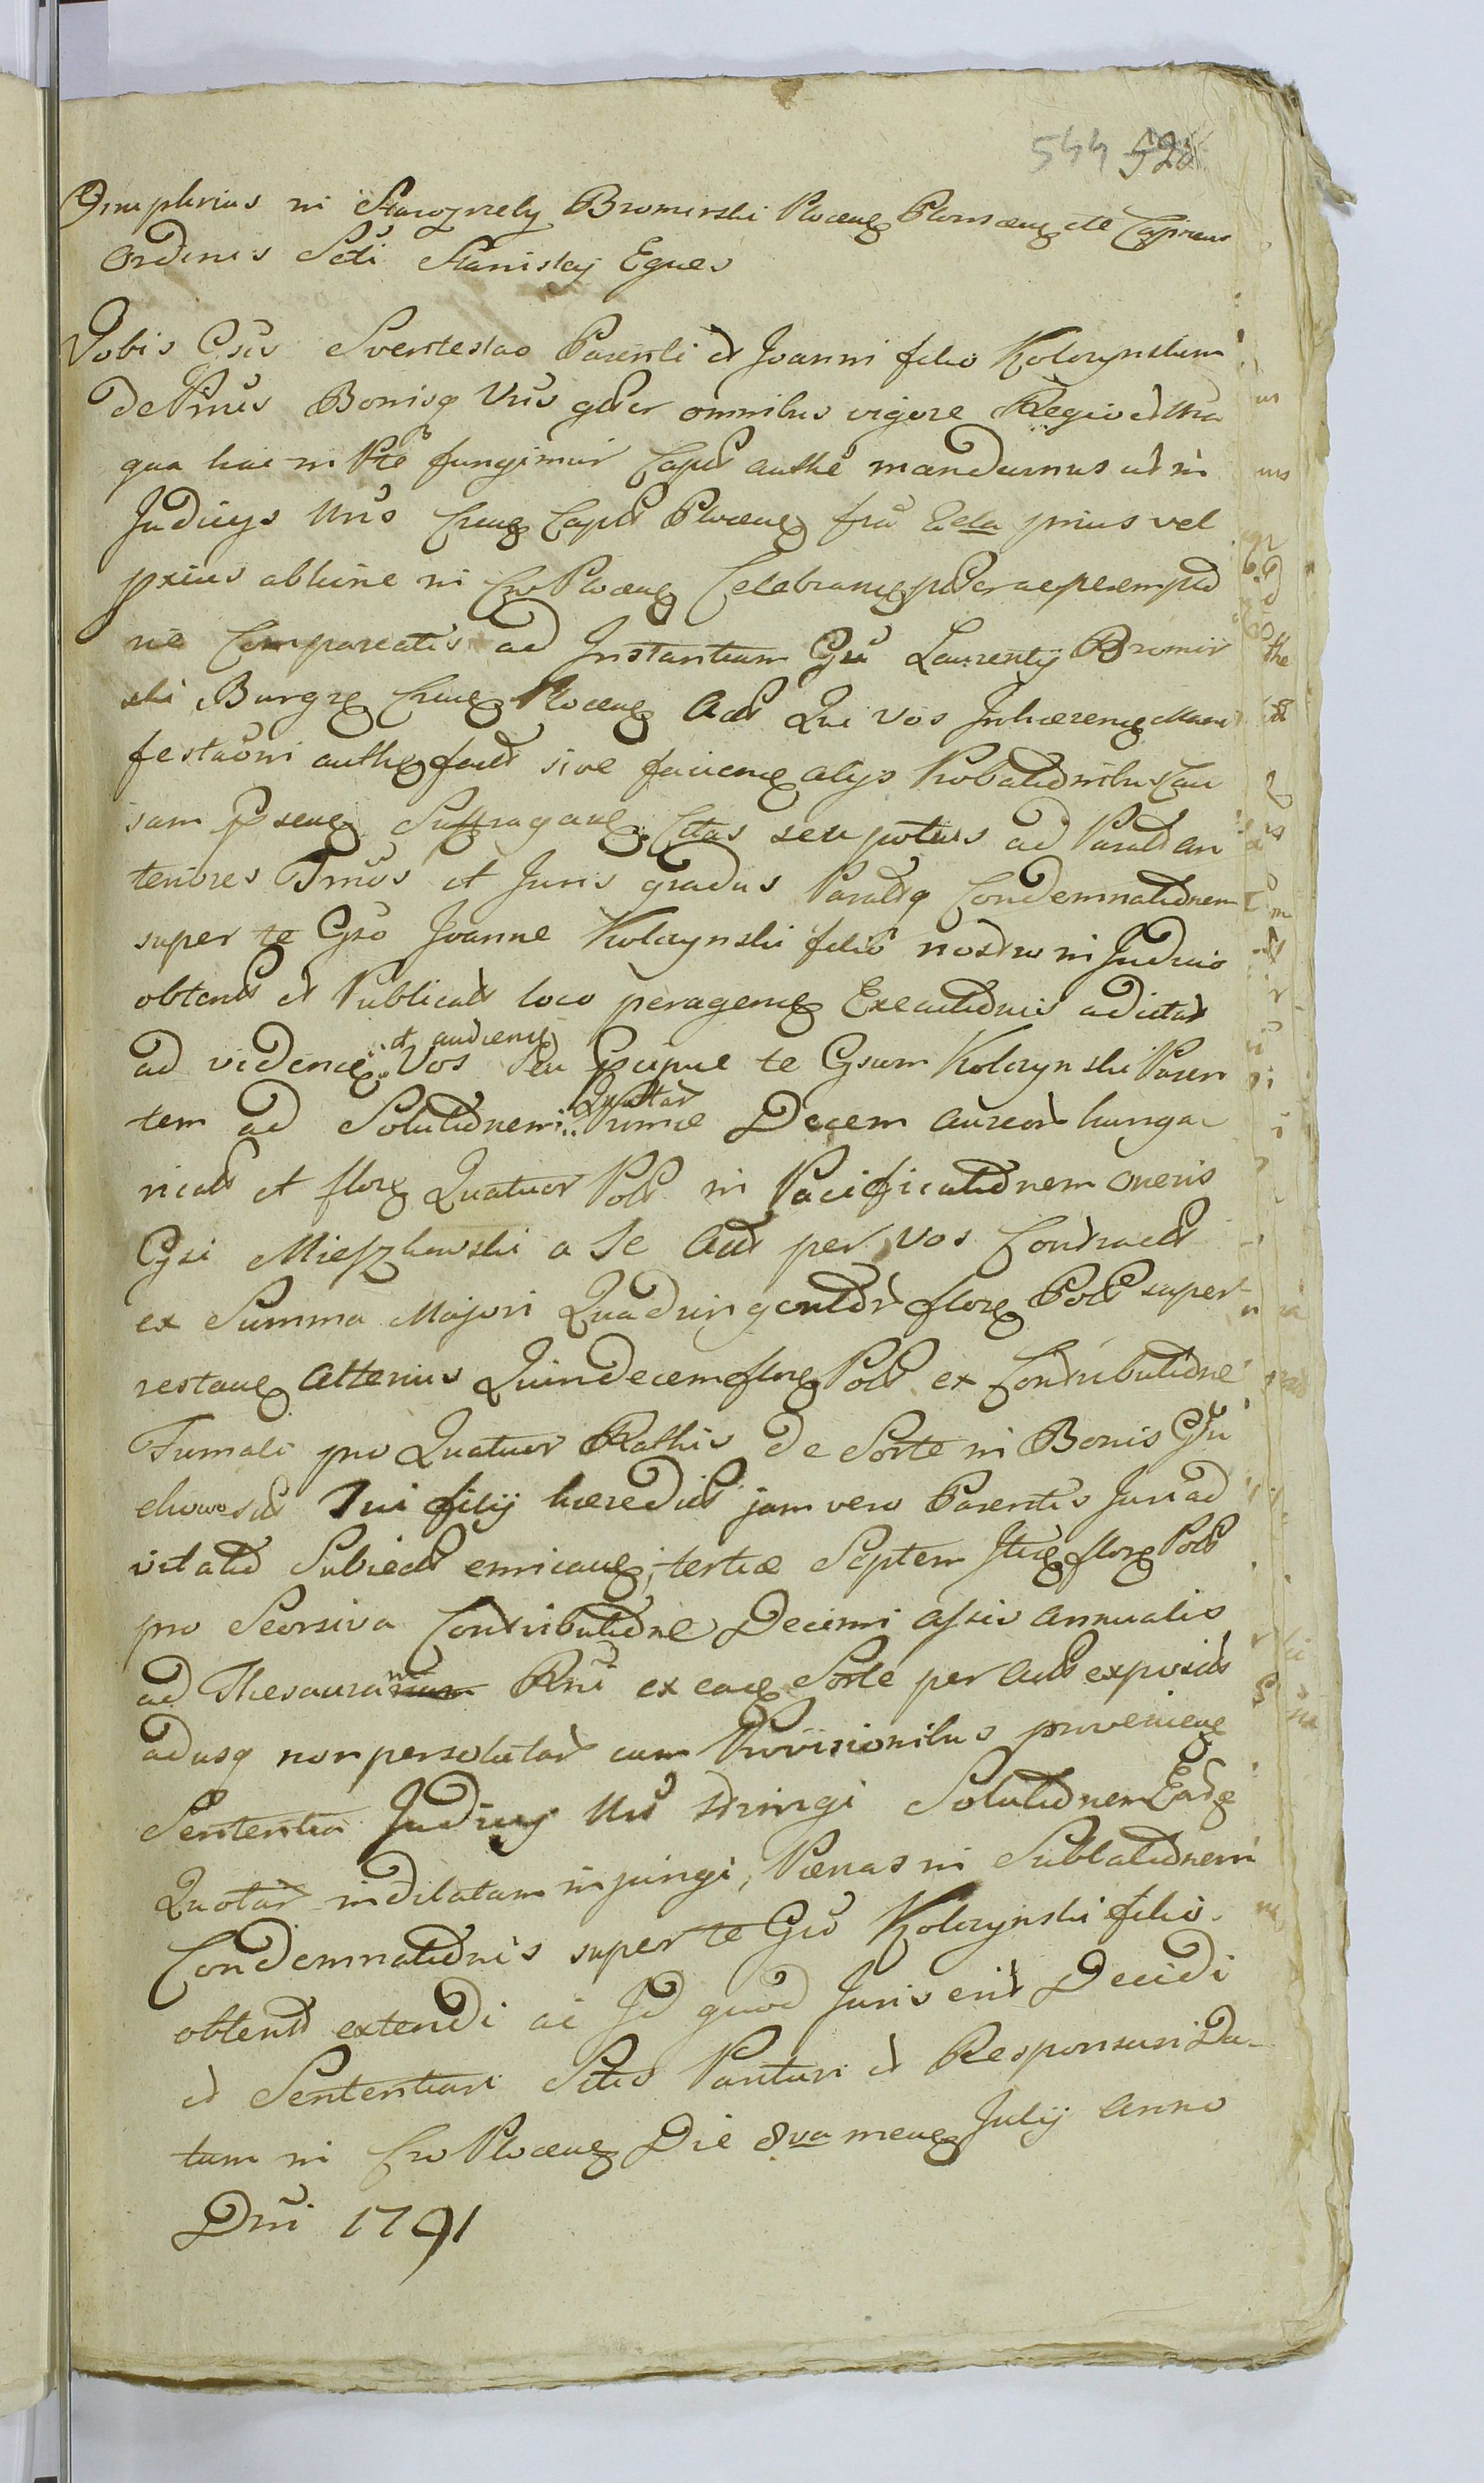 544 528
Onuphrius in Starozreby Bromirski Plocen Plonscen etc Capneus
Ordinis Scti Stanislaj Eques
Vobis Gsis Sventeslao Parenti et Joanni filio Kolczynskim
de Psnis Bonisq Vris gnlr omnibus vigore Regio et sua
qua hac in Pte fungimur Capli authe mandamus ut in
Judicys Nris Cren Capli Plocen fria 2da prius vel
pxius abhinc in Cro Plocen Celebran plr ac peremptd
rie Compareatis ad Instantiam Gsi Laurentij Bromir
ski Burgr Cren Plocen Act Qui Vos Inhaeren Mani
festaoni authe fact sive facien alijs Probatdnibus Cau
sam Psen Suffragan Citas seu potius ad Paratd an
teriores Tnos et Juris gradus Paratdq Condemnatdnem
super te Gso Joanne Kolczynski filio nostro in Judicio
obtent et Publicat loco peragen Executdnis adcitat
ad viden et audien Vos seu pcipue te Gsum Kolczynski Paren
tem ad Solutdnem Quotar Primae Decem aureor hunga
rical et flor Quatuor Pol in Pacificatdnem oneris
Gsi Mieszkowski a Se Act per Vos Contract
ex Summa Majori Quadringentdr flor Pol super
restan alterius Quindecem flor Pol ex Contributdne
Fumali pro Quatuor Rathis de Sorte in Bonis
Tui filij haeredit jam vero Parentis Juri ad
vitatd Subiect emican, tertiae Septem Itid flor Pol
pro Seorsiva Contributdne Decimi assis annualis
ad Thesaurum Rni ex ead Sorte per Act exposit
adusq non persolutar cum Provisionibus provenien
Sententia Judicij Nri stringi Solutdnem Ead
Quotar indilatam injungi, Paenas in Sublatdnem
Condemnatdnis super te Gso Kolczynski filio
obtent extendi ac Id quod Juris erit Decidi
et Sententiari Sitis Parituri et Responsuri Da-
tum in Cro Plocen Die 8va men Julij Anno
Dni 1791